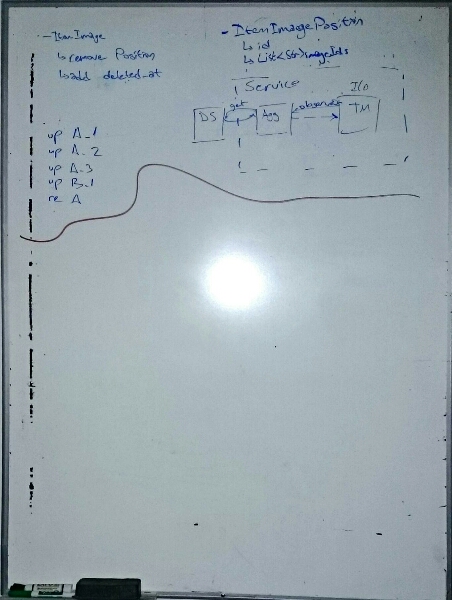 - ItemImage
↳ remove Position
↳ add deleted_at
up A_1
up A_2
up A_3
up B_1
re A
- ItemImagePosition
↳ id
↳ List<Str> imageIds
Service
DS
get
Agg
observe
TM